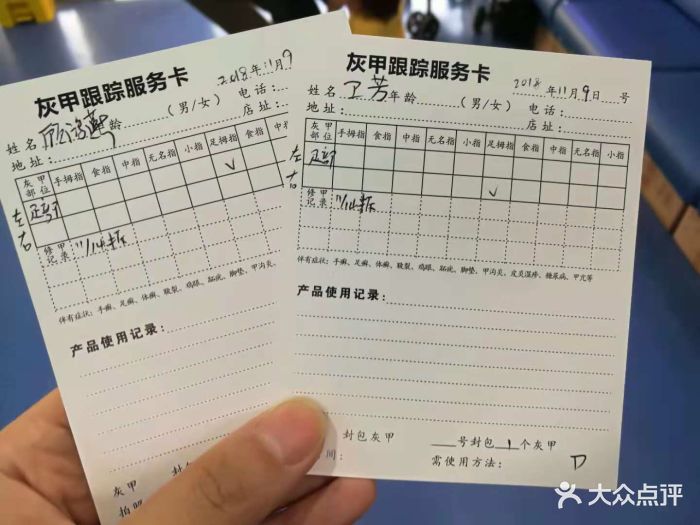 灰甲跟踪服务卡
2018年11月9
姓名 年龄 (男/女) 电话:
地址: 店址:
灰甲部位 手拇指 食指 中指 无名指 小指 足拇指 食指 中指
左 ✓
右
修甲记录 11/14
伴有症状: 手癣、足癣、体癣、皲裂、鸡眼、跖疣、脚垫、甲沟炎、
产品使用记录:
灰甲 封包
拍照 间:
灰甲跟踪服务卡
2018年11月9日 号
姓名 卫芳 年龄 (男/女) 电话:
地址: 店址:
灰甲部位 手拇指 食指 中指 无名指 小指 足拇指 食指 中指 无名指 小指
左
右 ✓
修甲记录 11/14
伴有症状: 手癣、足癣、体癣、皲裂、鸡眼、跖疣、脚垫、甲沟炎、皮炎湿疹、糖尿病、甲亢等
产品使用记录:
封包灰甲 号封包1个灰甲
间: 需使用方法: D
大众点评